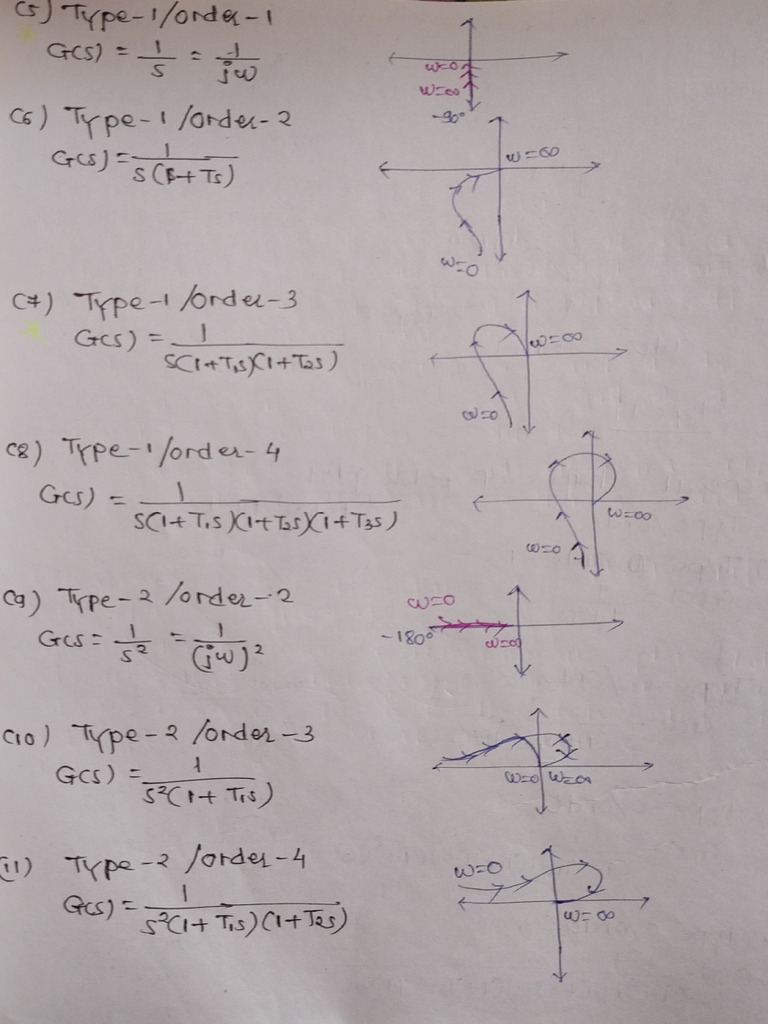 (5) Type-1/order-1
G(s) = 1/s = 1/jω
ω=0
ω=∞
-90°
(6) Type-1/order-2
G(s) = 1/s(1+Ts)
ω=∞
ω=0
(7) Type-1/order-3
G(s) = 1/s(1+T1s)(1+T2s)
ω=∞
ω=0
(8) Type-1/order-4
G(s) = 1/s(1+T1s)(1+T2s)(1+T3s)
ω=∞
ω=0
(9) Type-2/order-2
G(s = 1/s² = 1/(jω)²
ω=0
-180°
ω=∞
(10) Type-2/order-3
G(s) = 1/s²(1+T1s)
ω=0 ω=∞
(11) Type-2/order-4
G(s) = 1/s²(1+T1s)(1+T2s)
ω=0
ω=∞